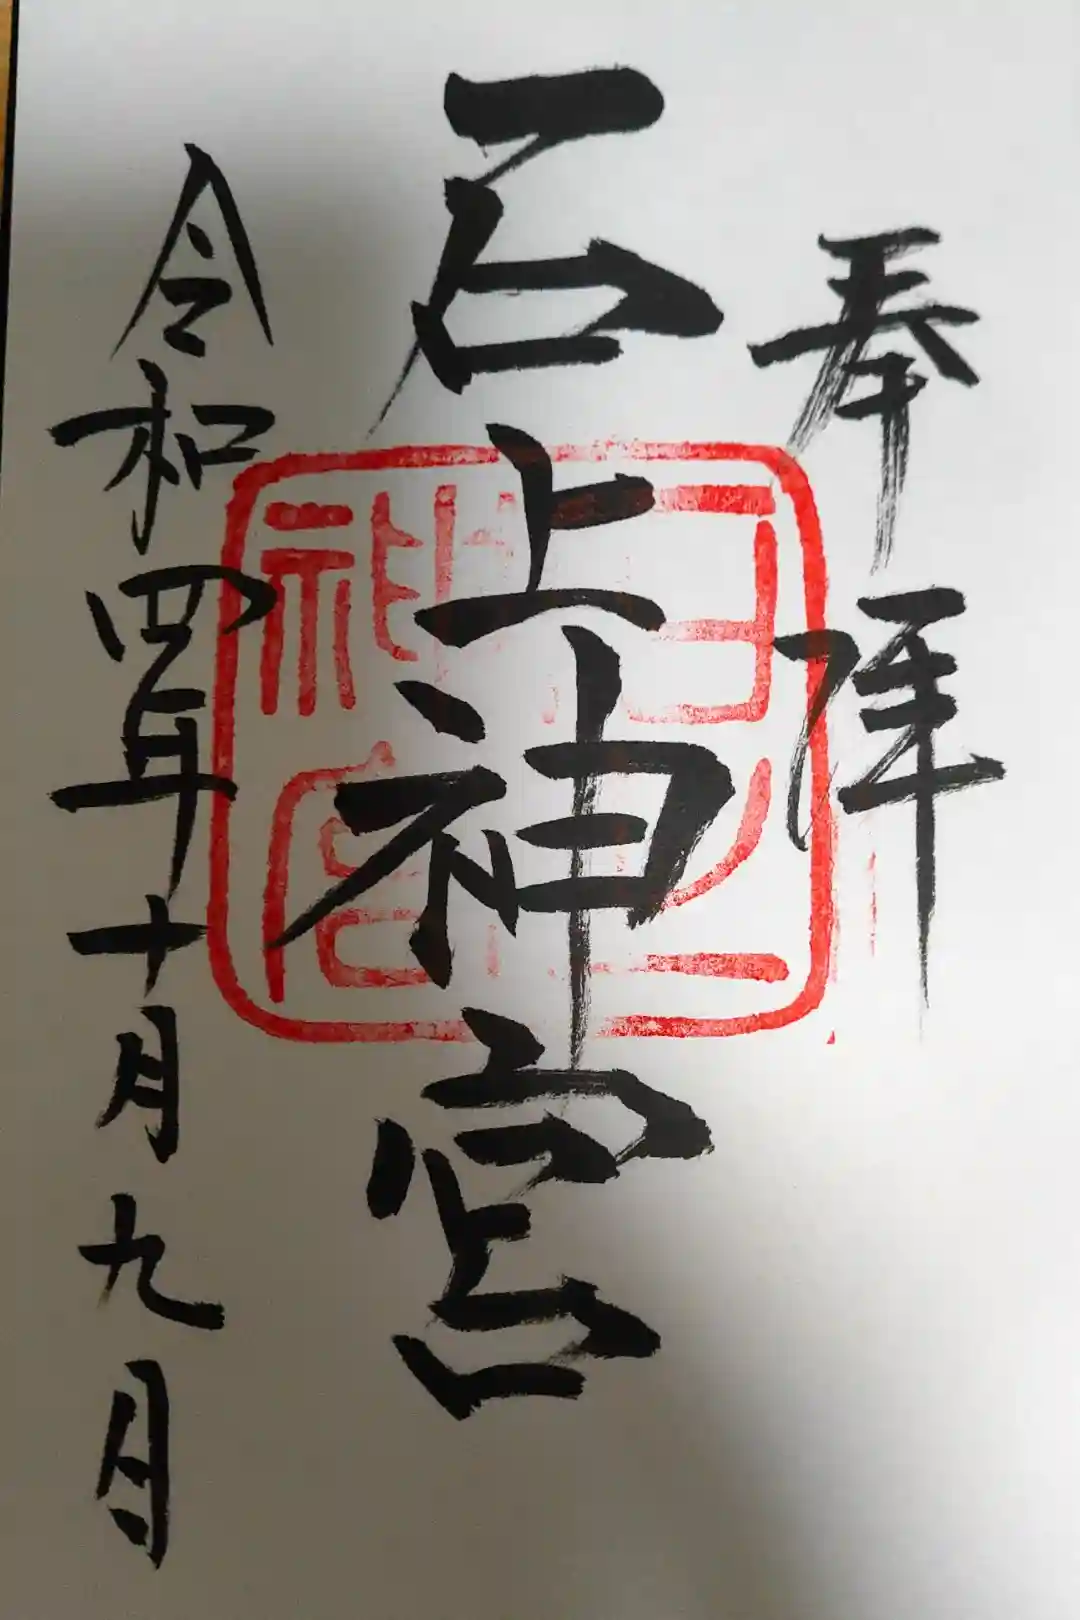 奉拝
石上神宮
令和四年十月九日
石上神宮